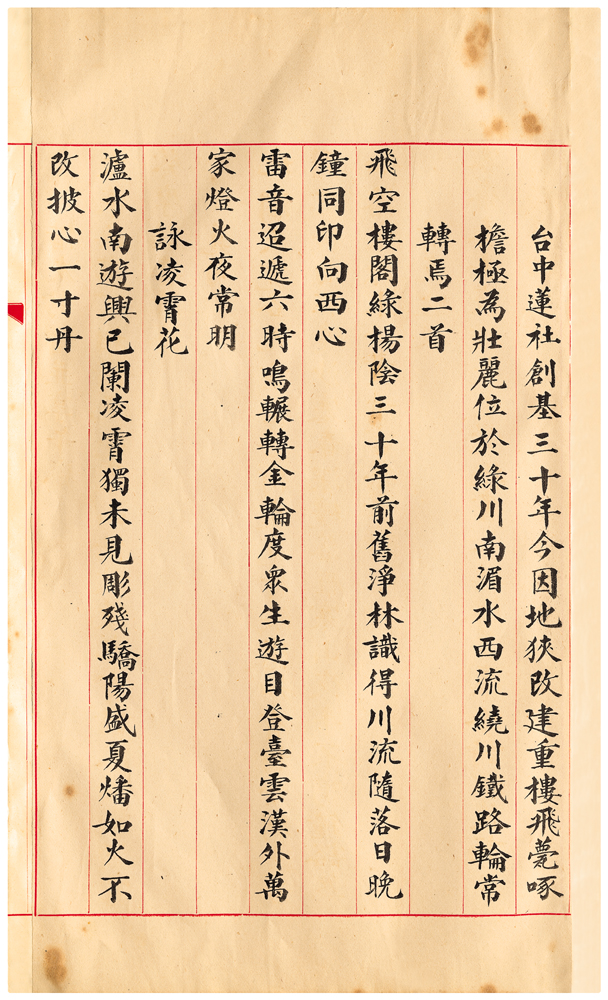 台中蓮社創基三十年今因地狹改建重樓飛甍啄
檐極為壯麗位於綠川南湄水西流繞川鐵路輪常
轉焉二首
飛空樓閣綠楊陰三十年前舊淨林識得川流隨落日晚
鐘同印向西心
雷音迢遞六時鳴輾轉金輪度眾生遊目登臺雲漢外萬
家燈火夜常明
詠凌霄花
瀘水南遊興已闌凌霄獨未見彫殘驕陽盛夏燔如火不
改披心一寸丹